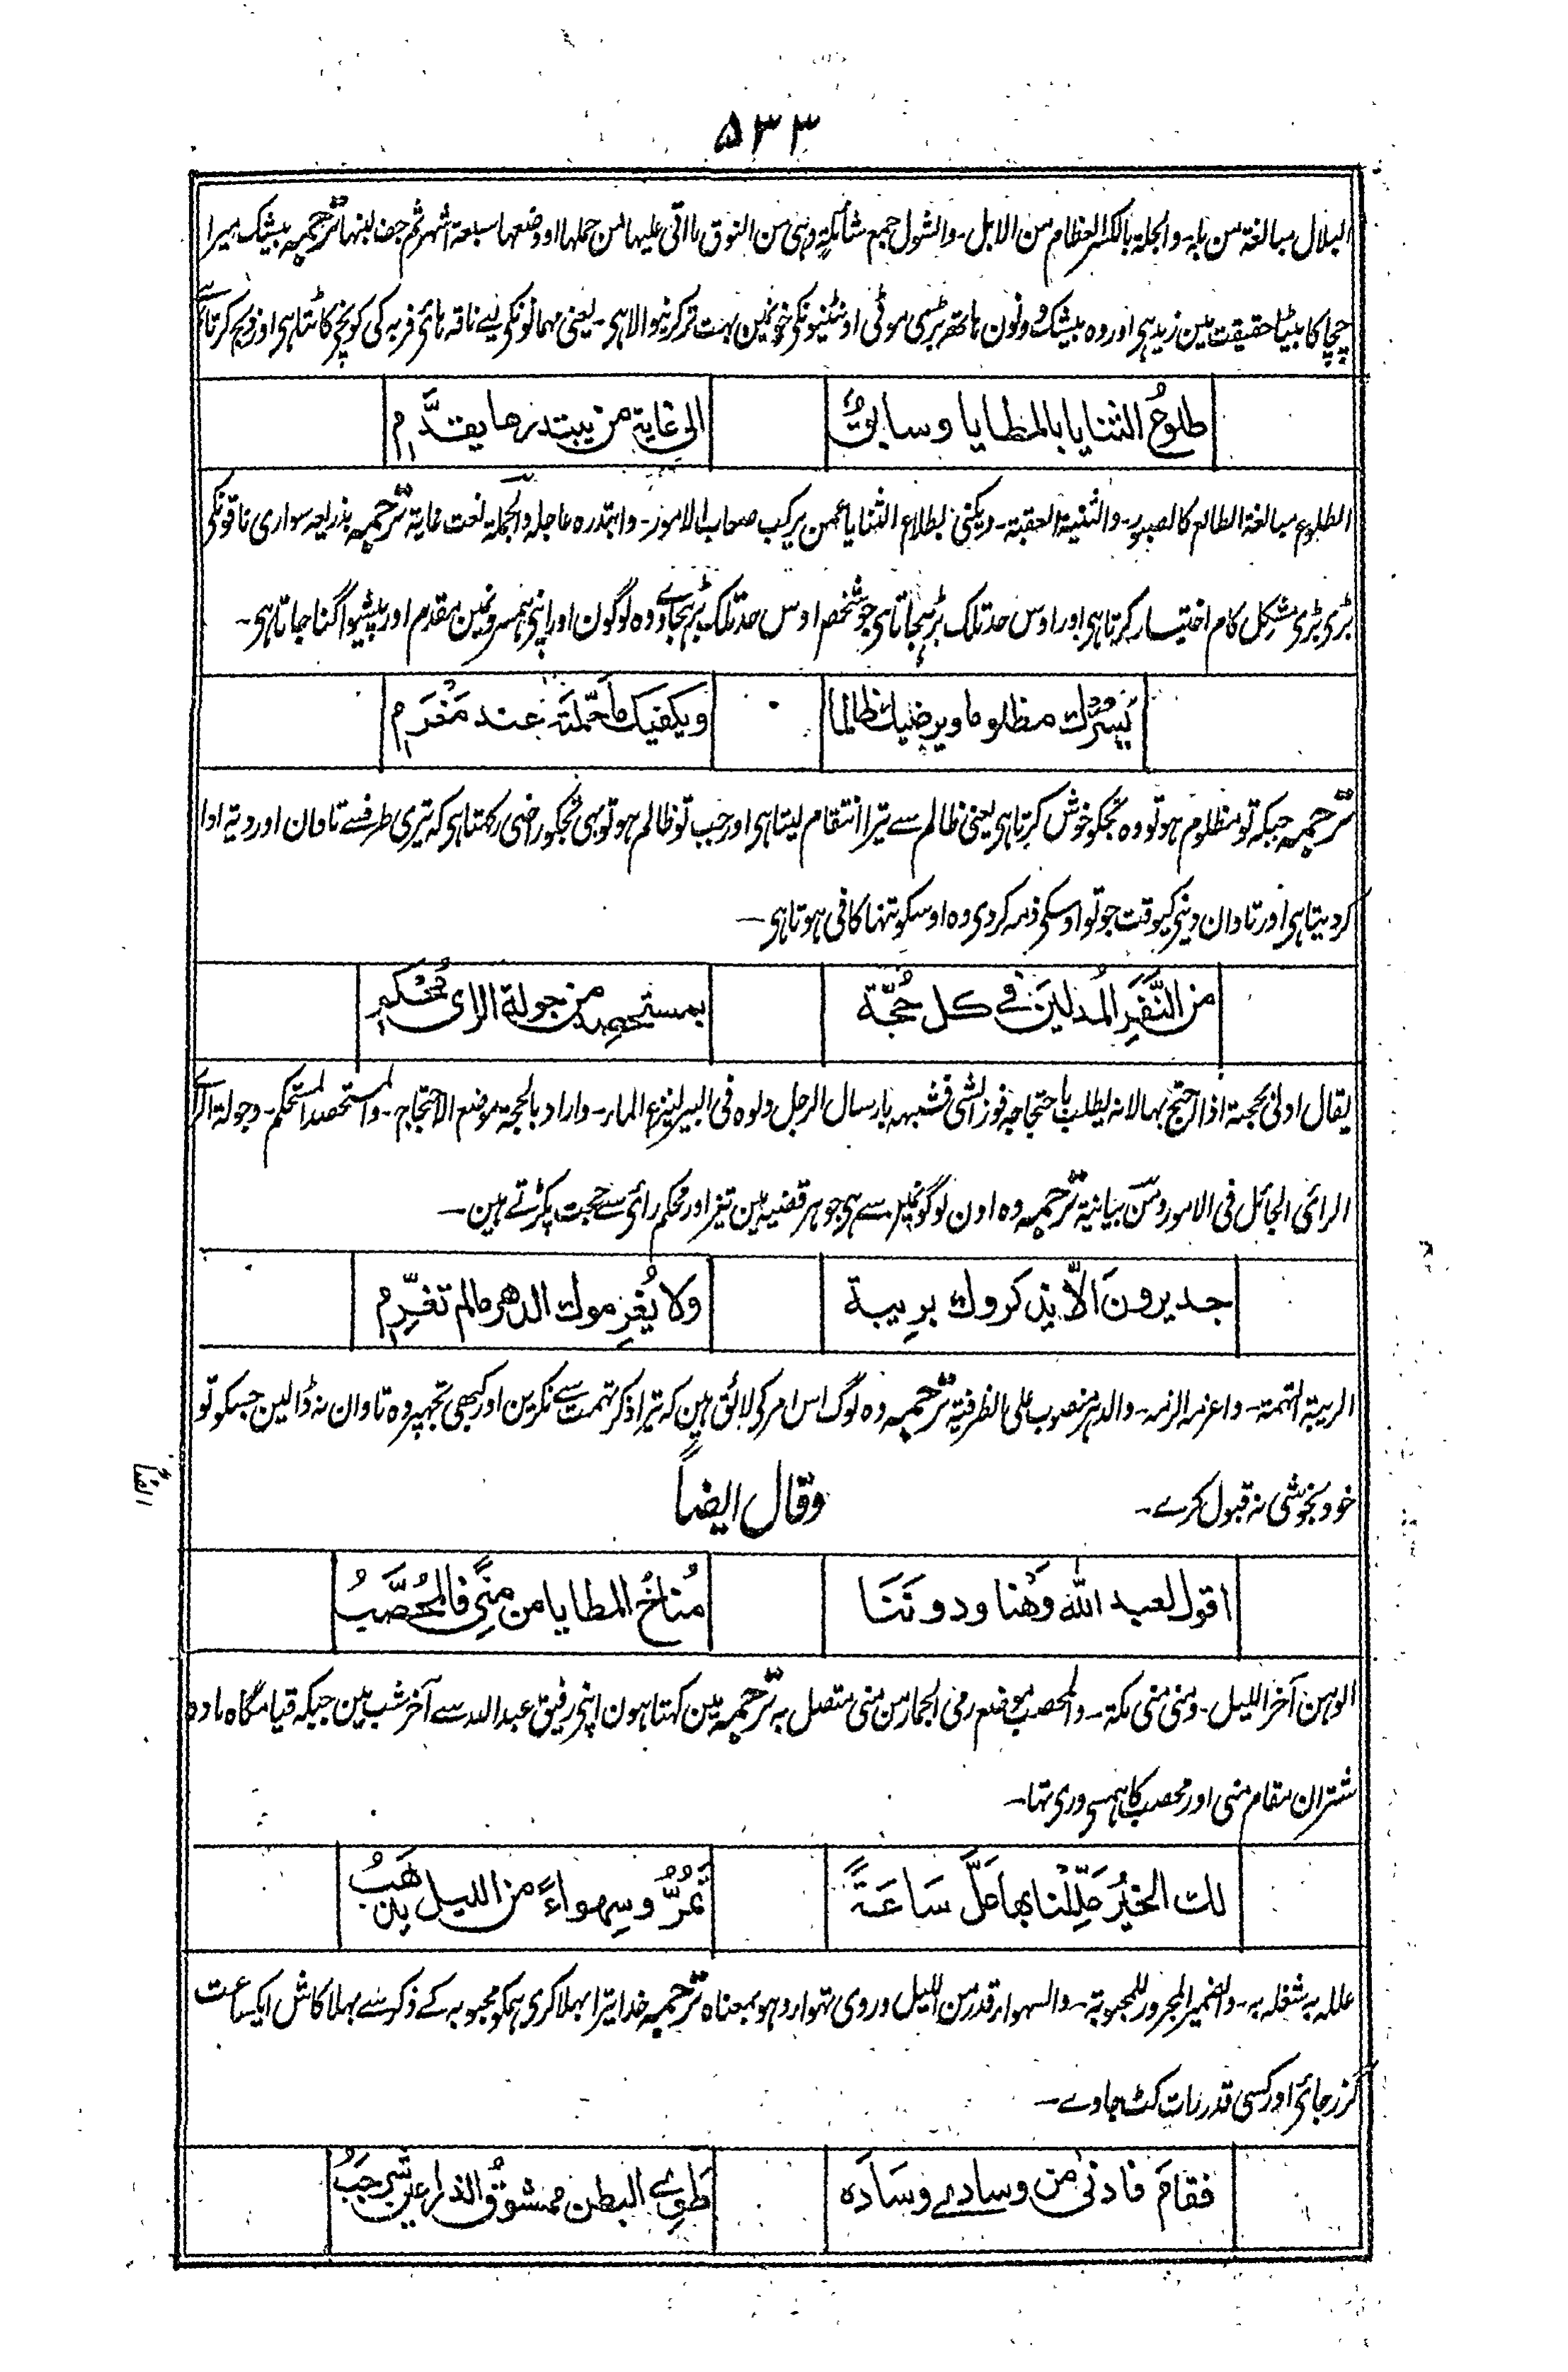 ۵۳۳
البلال مبالغة من بله۔ والجلة بالکسر العظام من الابل۔ والشول جمع شائلة وہی من النوق ما اتی علیہا من حملہا او وضعہا سبعة اشہر ثم جف لبنہا ترجمہ بیشک میرا
چچا کا بیٹا حقیقت مین زید ہی اور وہ بیشک دونون ہاتھ بڑی موٹی اونٹنیونکی خونمین بہت تر کرنیوالا ہی۔ یعنی مہمانونکی لیے ناقہ ہائے فربہ کی کونچ کاٹتا ہی اور ذبح کرتا ہے
طلوعُ الثنایا بالمطایا وسابقٌ الی غایة من یبتدرها یقدَّمِ
الطلوع مبالغة الطالع کالصبور۔ والثنیة العقبة۔ ویکنی بطلاع الثنایا عمن یرکب صعاب الامور۔ وابتدرہ عاجلہ والجملة نعت غایة ترجمہ بذریعہ سواری ناقونکی
بڑی بڑی مشکل کام اختیار کرتا ہی اور اوس حد تلک بڑہجاتا ہی جو شخص اوس حد تلک بڑہجاوے وہ لوگون اور اپنی ہمسرونمین مقدم اور پیشوا گنا جاتا ہی۔
یَسُرُّك مظلوما ویرضیك ظالما ویکفیك ما حَمَّلتَہ عند مَغْرَمِ
ترجمہ جبکہ تو مظلوم ہو تو وہ تجکو خوش کرتا ہی یعنی ظالم سے تیرا انتقام لیتا ہی اور جب تو ظالم ہو تو بہی تجکو راضی رکہتا ہی کہ تیری طرف سے تاوان اور دیة ادا
کر دیتا ہی اور تاوان دینی کیوقت جو تو اوسکی ذمہ کردی وہ اوسکو تنہا کافی ہوتا ہی۔
من النَّفَرِ المُدلینَ فی کل حُجَّة بمستحصد من جولة الرای مُحْکَمِ
یقال ادلی بحجتہ اذا احتج بہا لانہ یطلب باحتجاجہ فوز الشی فشبہہ بارسال الرجل دلوہ فی البیر لینزع الماء۔ واراد بالحجة موضع الاحتجاج۔ والمستحصد المستحکم۔ وجولة الرأے
الرائی الجائل فی الامور ومن بیانیة ترجمہ وہ اون لوگونمین سے ہی جو ہر قضیہ مین تیز اور محکم رائی سے حجت پکڑتے ہین۔
جدیرونَ الّا یذکروك برِیبة ولا یُغرِموك الدهر ما لم تغرَّمِ
الریبة التہمة۔ واغرمہ الزمہ۔ والدہر منصوب علی الظرفیة ترجمہ وہ لوگ اس امر کی لائق ہین کہ تیرا ذکر تہمت سے نکرین اور کبہی تجہپر وہ تاوان نہ ڈالین جسکو تو
خود بخوشی نہ قبول کرے۔
وقال ایضاً
ایضاً
اقول لعبد الله وَهْنا ودونَنَا مُناخُ المطایا من مِنًی فالمُحَصَّبُ
الوہن آخر اللیل۔ ومنی منی مکة۔ والمحصب موضع رمی الجمار من منی متصل بہ ترجمہ مین کہتا ہون اپنی رفیق عبداللہ سے آخر شب مین جبکہ قیامگاہ مادہ
شتران مقام منی اور محصب کا ہمسی وری تہا۔
لك الخیرُ عَلِّلْنا بها عَلَّ سَاعَةً تَمُرُّ وسِهواءً من اللیل یذهَبُ
عللہ بہ شغلہ بہ۔ والضمیر المجرور للمحبوبة۔ والسہواء قدر من اللیل وروی تہواء وہو بمعناہ ترجمہ خدا تیرا بہلا کری ہمکو محبوبہ کے ذکر سے بہلا کاش ایکساعت
گزر جائی اور کسی قدر رات کٹ جاوے۔
فقامَ فادنٰی من وسادے وسَادَه طَوِے البطن ممشوقُ الذراعین شَرجَبُ